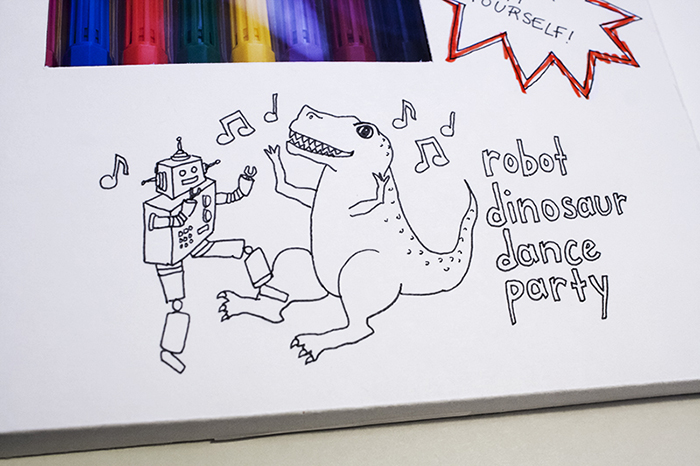 YOURSELF!
robot
dinosaur
dance
party